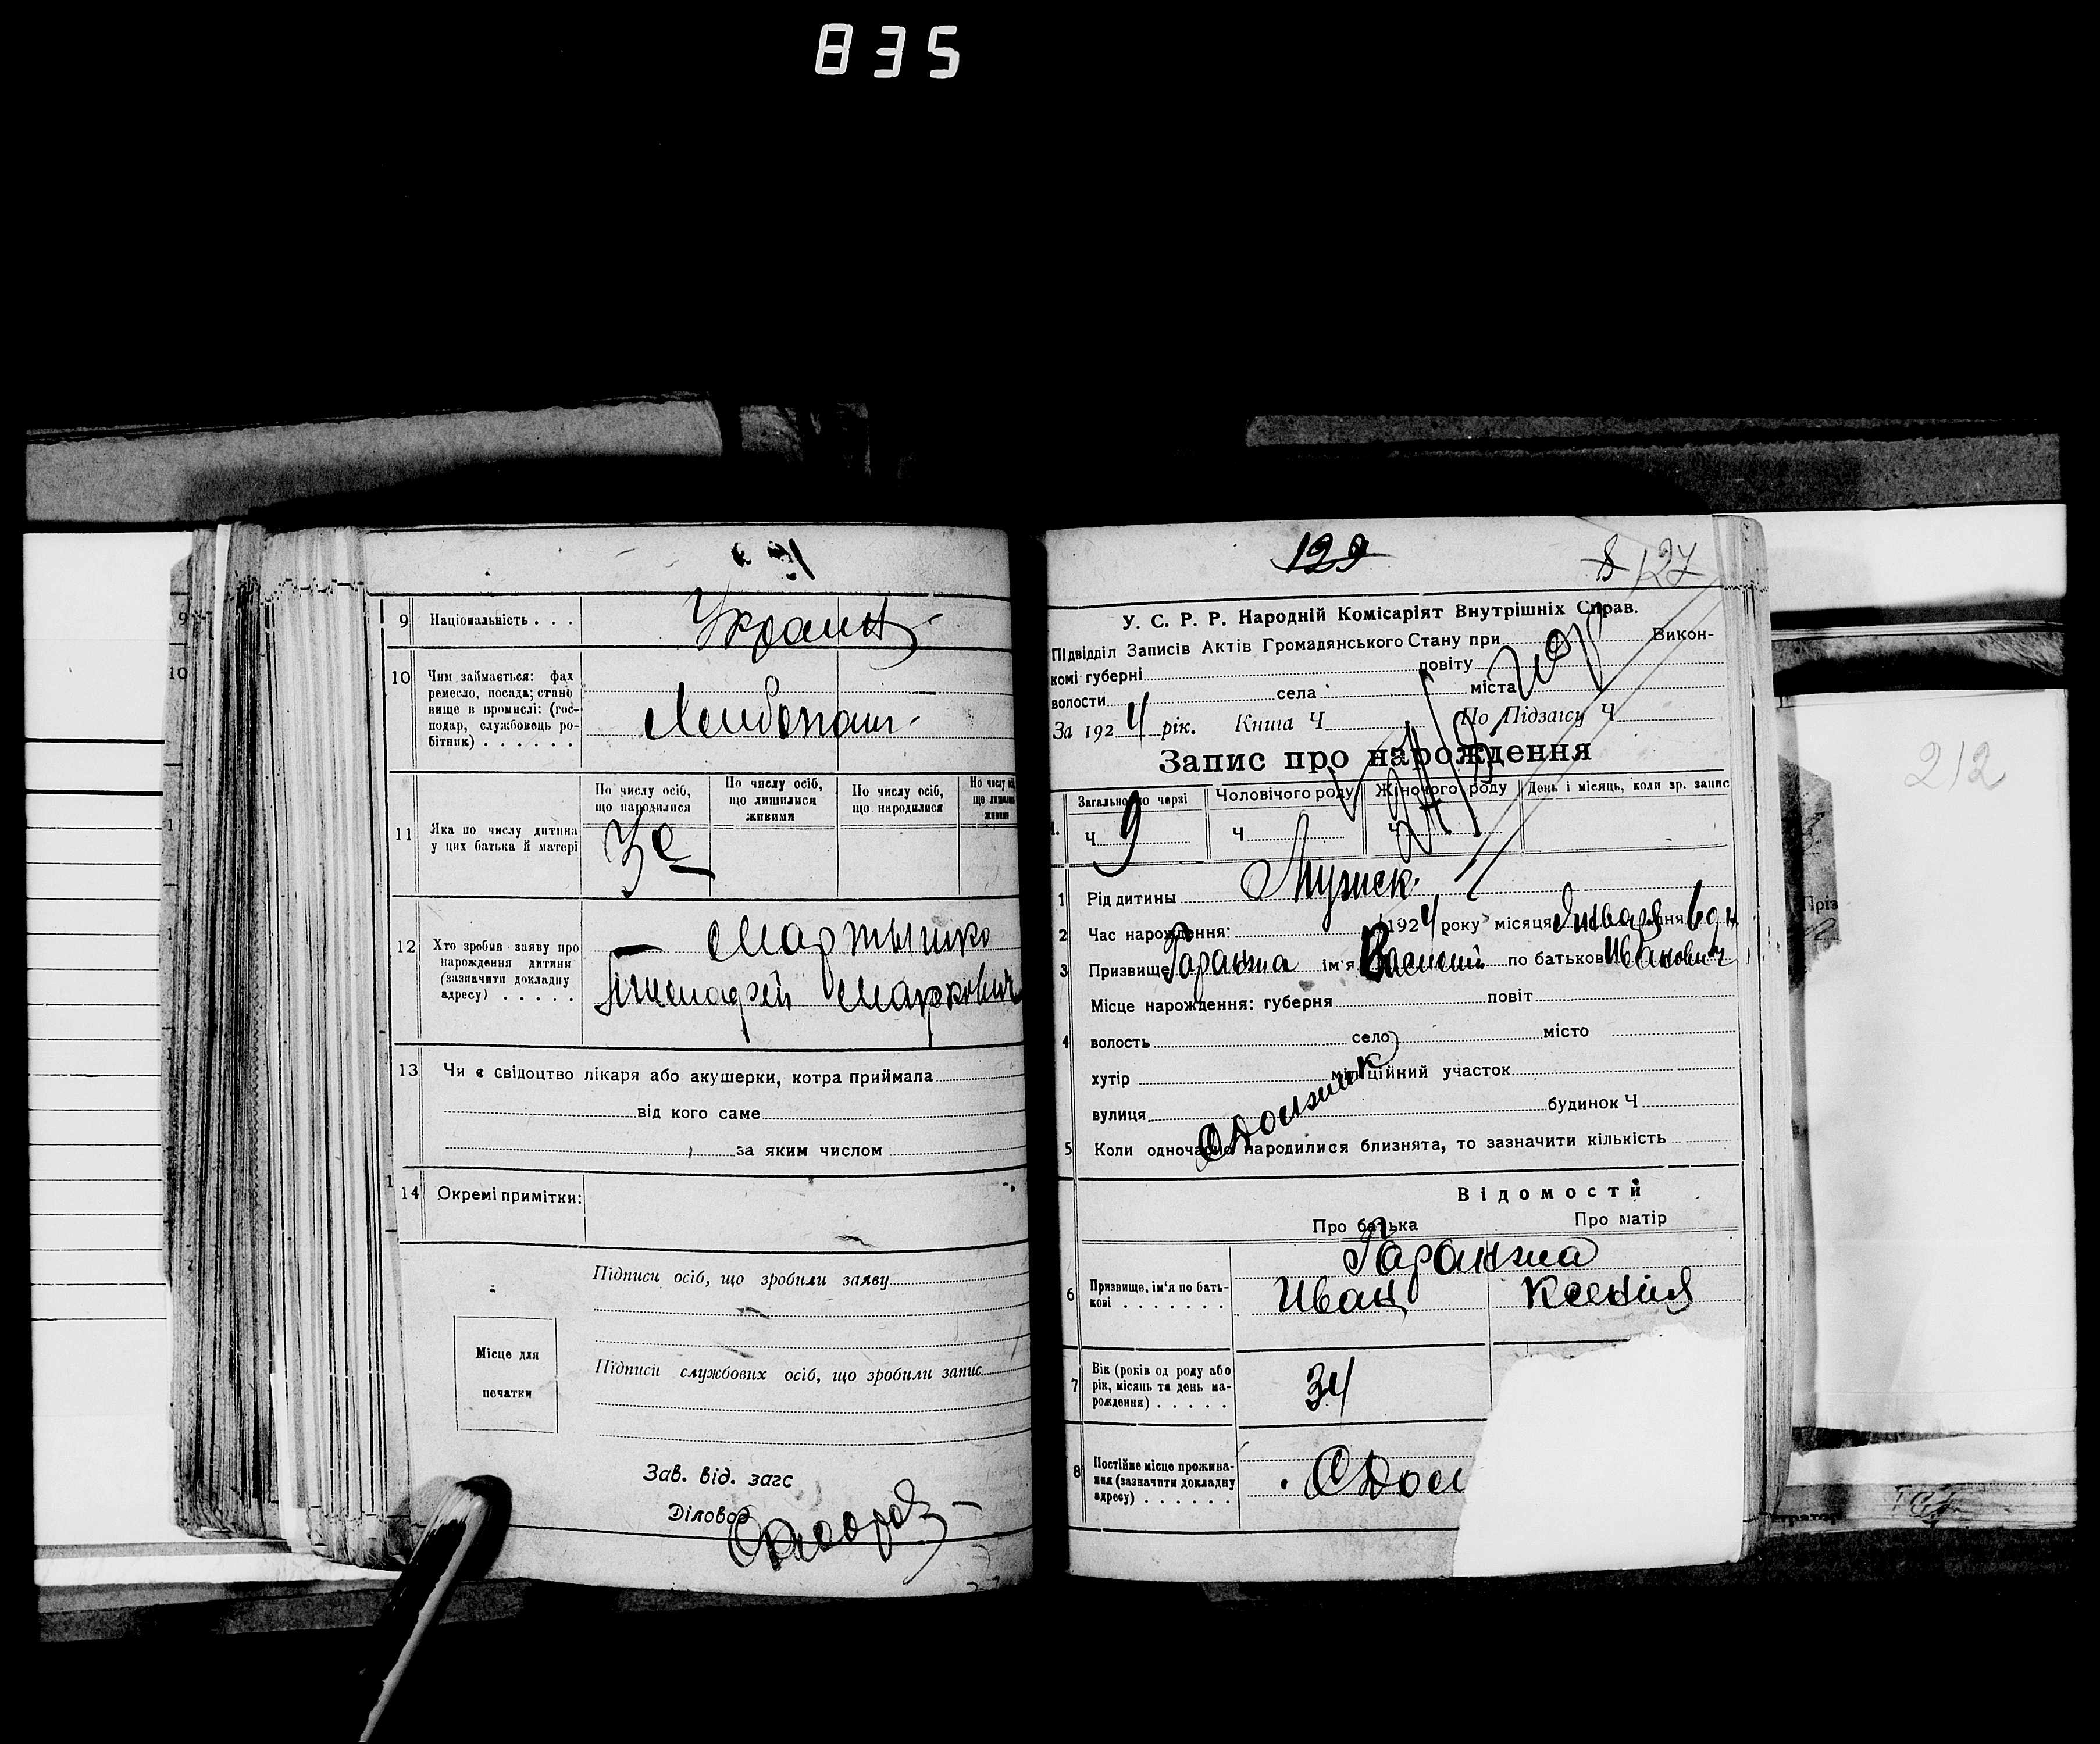 835
9 Національність . . .
Украин
10 Чим займається: фах
ремесло, посада; стано
вище в промислі: (гос-
подар, службовець ро-
бітник) . . . . . .
Хлибопаш.
По числу осіб, що народилися
По числу осіб, що лишилися живими
По числу осіб, що народилися
По числу осіб, що лишил живими
11 Яка по числу дитина
у цих батька й матері
3е
12 Хто зробив заяву про
нарождення дитини
(зазначити докладну
адресу) . . . . .
Мартышко
Тимофей Маркович
13 Чи є свідоцтво лікаря або акушерки, котра приймала
від кого саме
за яким числом
14 Окремі примітки:
Підписи осіб, що зробили заяву
Місце для
печатки
Підписи службових осіб, що зробили запис
Зав. від. загс
Діловод
129
8 127
У. С. Р. Р. Народній Комісаріят Внутрішніх Справ.
Підвідділ Записів Актів Громадянського Стану при Викон-
комі губерні повіту
волости села міста
За 1924 рік. Книга Ч По Підзагсу Ч
Запис про нарождення
Загально по черзі
Чоловічого роду
Жіночого роду
День і місяць, коли зр. запис
1. Ч 9 Ч Ч
1 Рід дитины Мужск.
2 Час нарождення: 1924 року місяця Января дня 6 дн
3 Призвище Гаранжа ім'я Василий по батькові Иванович
Місце нарождення: губерня повіт
4 волость село місто
хутір міліційний участок
вулиця будинок Ч
5 Коли одночасно народилися близнята, то зазначити кількість
Відомости
Про батька Про матір
Гаранжа
6 Призвище, ім'я по бать-
кові . . . . . . .
Иван Ксенія
7 Вік (років од роду або
рік, місяць та день на-
рождення) . . . . .
34
8 Постійне місце прожива-
ння (зазначити докладну
адресу) . . . . . .
212
Пріз